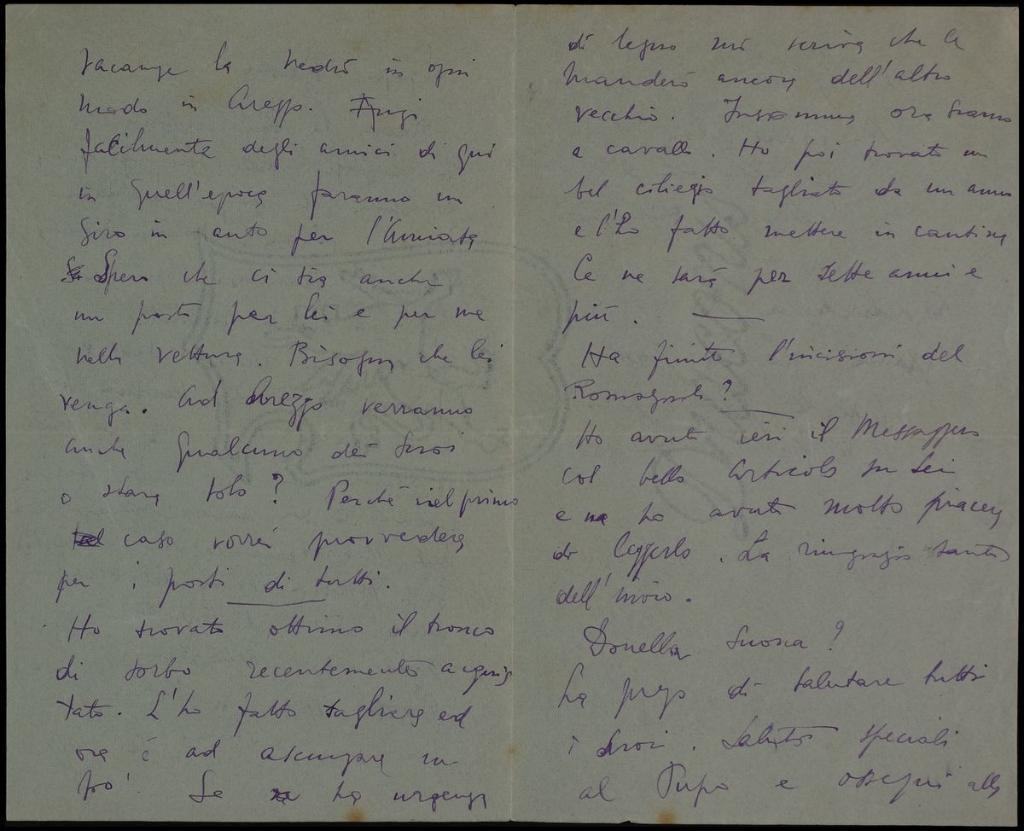 vacanze la vedrò in ogni
modo in Arezzo. Anzi
facilmente degli amici di qui
in quell'epoca faranno un
giro in auto per l'Amiata
Spero che ci sia anche
un posto per lei e per me
nella vettura. Bisogna che lei
venga. Ad Arezzo verranno
anche qualcuno dei suoi
o starà solo? Perché nel primo
caso vorrei provvedere
per i posti di tutti.
Ho trovato ottimo il tronco
di sorbo recentemente acquis
tato. L'ho fatto tagliare ed
ora è ad asciugare un
po'. Se ha urgenza
di legno mi scriva che le
manderò ancora dell'altro
vecchio. Insomma ora siamo
a cavallo. Ho poi trovato un
bel ciliegio tagliato da un anno
e l'ho fatto mettere in cantina
Ce ne sarà per sette anni e
più.
Ha finito l'incisioni del
Romagnoli?
Ho avuto ieri il Messaggero
col bello articolo su Lei
e ne ho avuto molto piacere
di leggerlo. La ringrazio tanto
dell'invio.
Donella suona?
La prego di salutare tutti
i suoi. Saluti speciali
al Pupo e ossequi alla